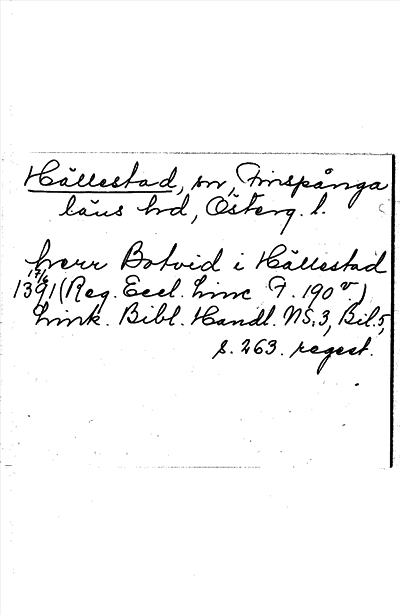 Hällestad, sn, Finspånga
läns hd, Österg. l.
herr Botvid i Hällestad
17/6
1391 (Reg. Eccl. Linc F. 190 v)
Link. Bibl. Handl. NS:3, Bil.5,
s. 263. regest.